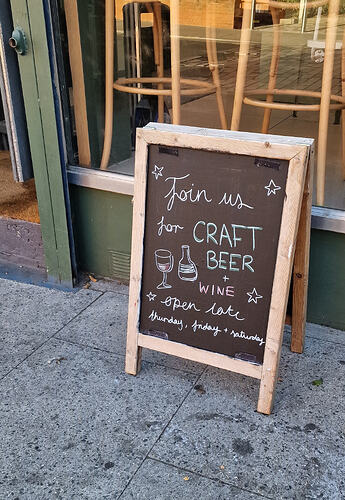 Join us
for CRAFT
BEER
+
WINE
open late
thursday, friday + saturday